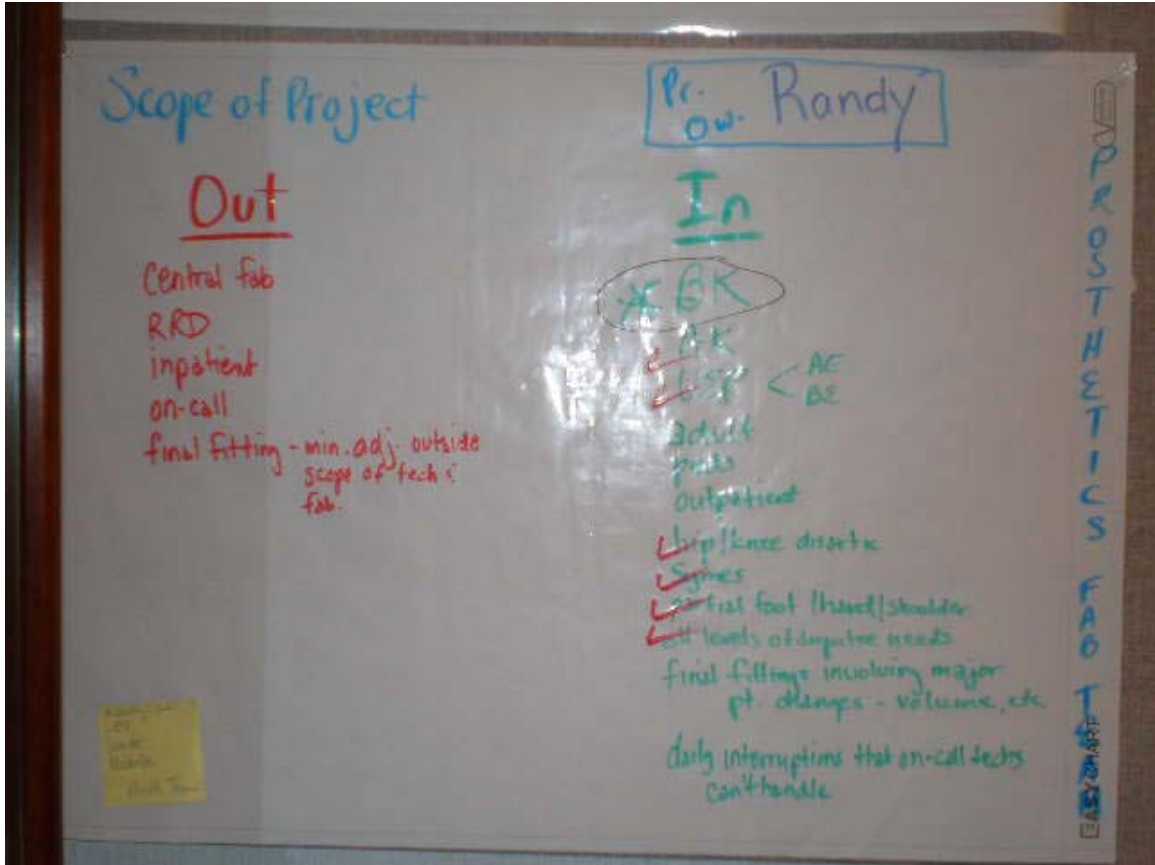 Scope of Project
Pr. Ow. Randy
Out
Central fab
RRD
inpatient
on-call
final fitting - min. adj. outside
scope of tech &
fab.
In
* BK
AK
< AE
BE
adult
peds
outpatient
hip/knee disartic
Symes
partial foot /hand/shoulder
all levels of amputee needs
final fittings involving major
pt. changes - volume, etc.
daily interruptions that on-call techs
can't handle
PROSTHETICS FAB TEAM
EASY CHART